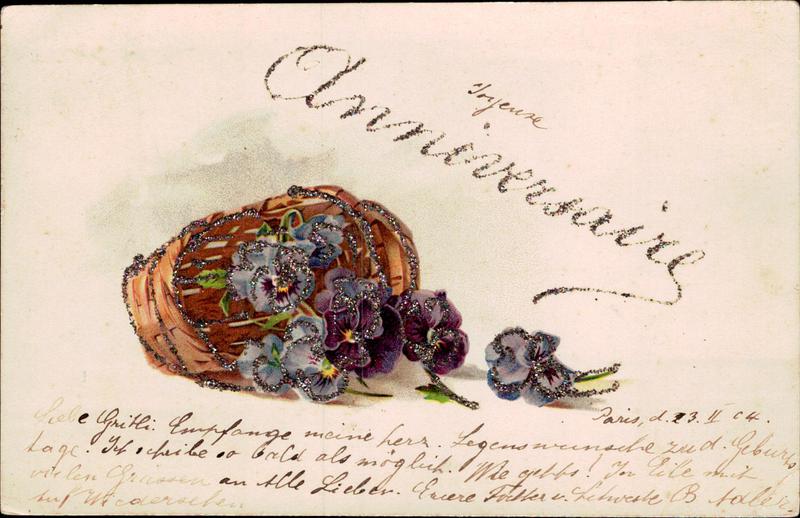 Joyeuse
Anniversaire
Paris, d. 23. II 04.
Liebe Gritli: Empfange meine herz. Segenswünsche zu d. Geburts
tage. Ich schreibe so bald als möglich. Wie gehts! In Eile mit
vielen Grüssen an Alle Lieben. Euere Tochter u. Schweste B Adler
Auf Wiedersehen.